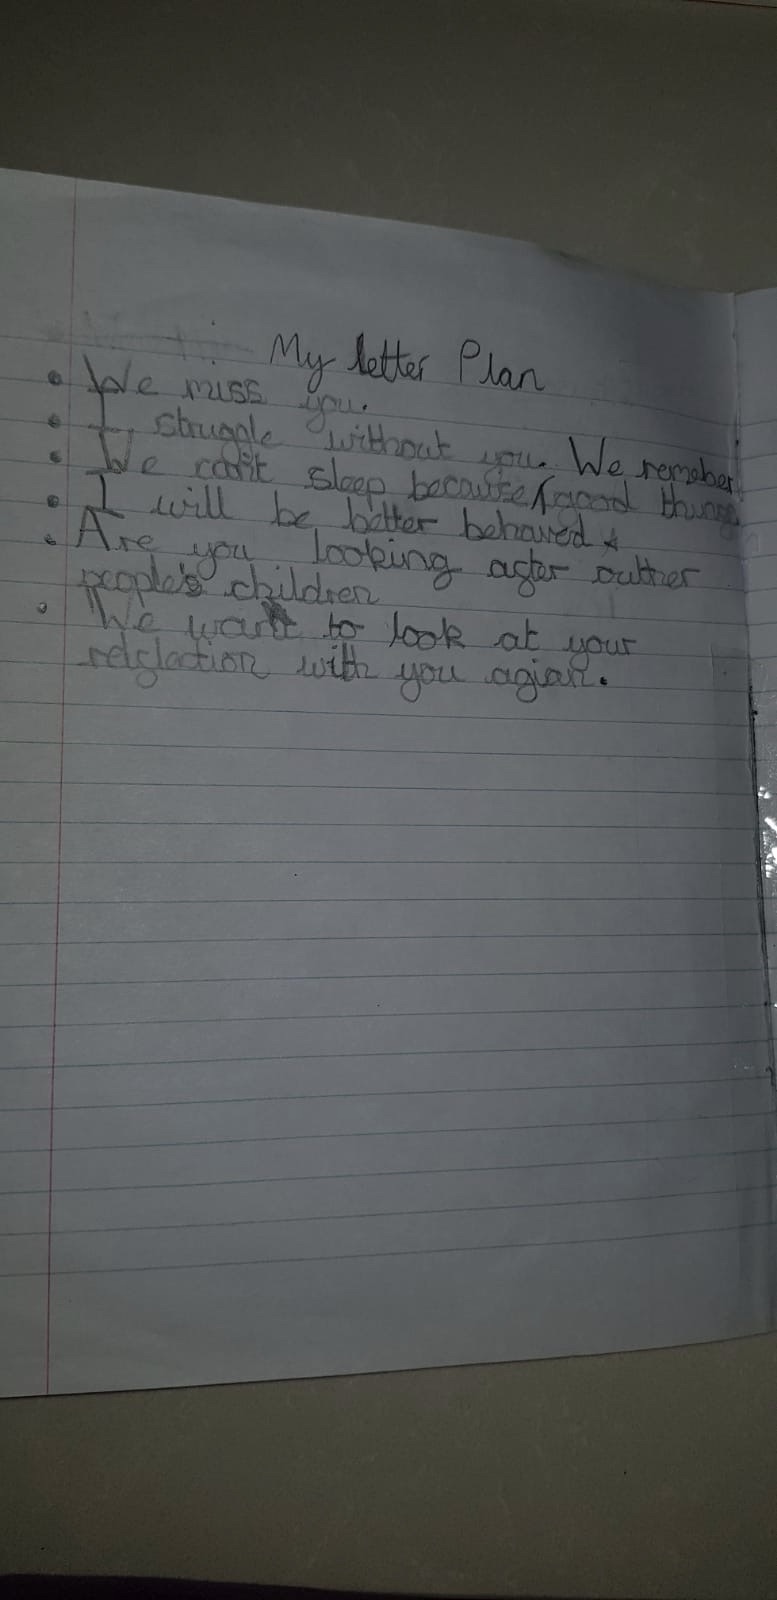 My letter Plan
• We miss you.
• I struggle without you. We remeber
• We can't sleep because good things
• I will be better behaved
• Are you looking after outher
people's children
• We want to look at your
relglection with you agian.